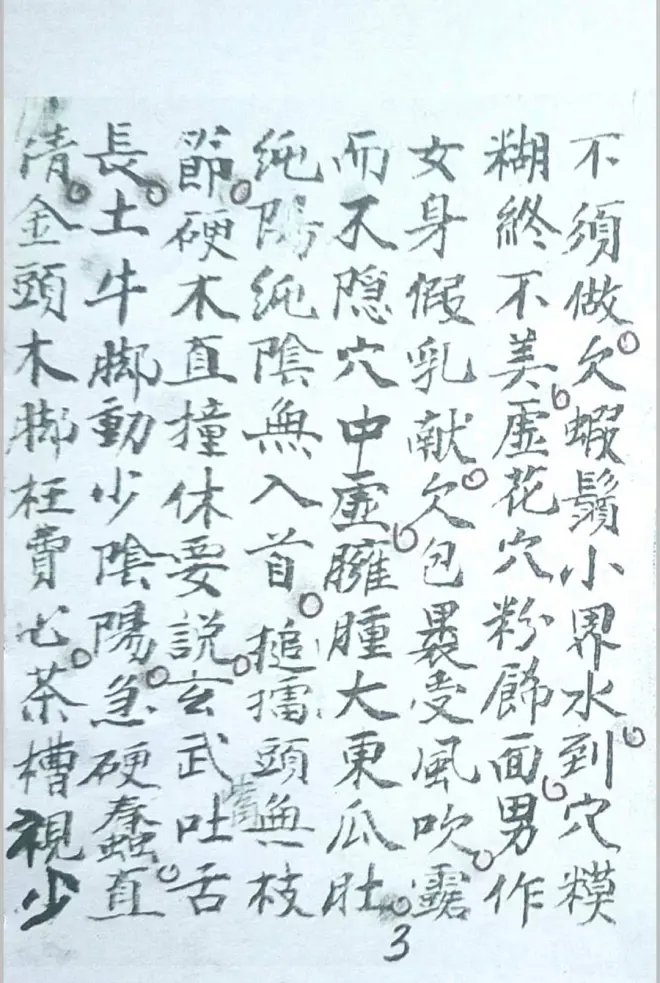 不須做。欠蝦鬚小界水。到穴糢
糊終不美。虛花穴粉飾面。男作
女身假乳献。欠包裹受風吹。露
而不隠穴中虛。臃腫大東瓜肚。
純陽純陰無入首。搥擂頭無枝
節。硬木直撞休要說。玄武吐舌
嘴
長。土牛脚動少陰陽。急硬蠢。直
情。金頭木脚枉費心。茶槽視少
3